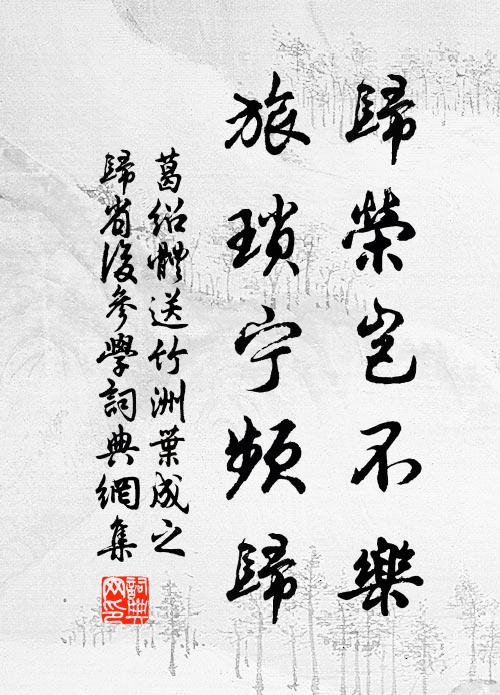 歸榮豈不樂
旅瑣宁頻歸
葛紹體送竹洲葉成之
歸省後參學詞典網集
詞典網印